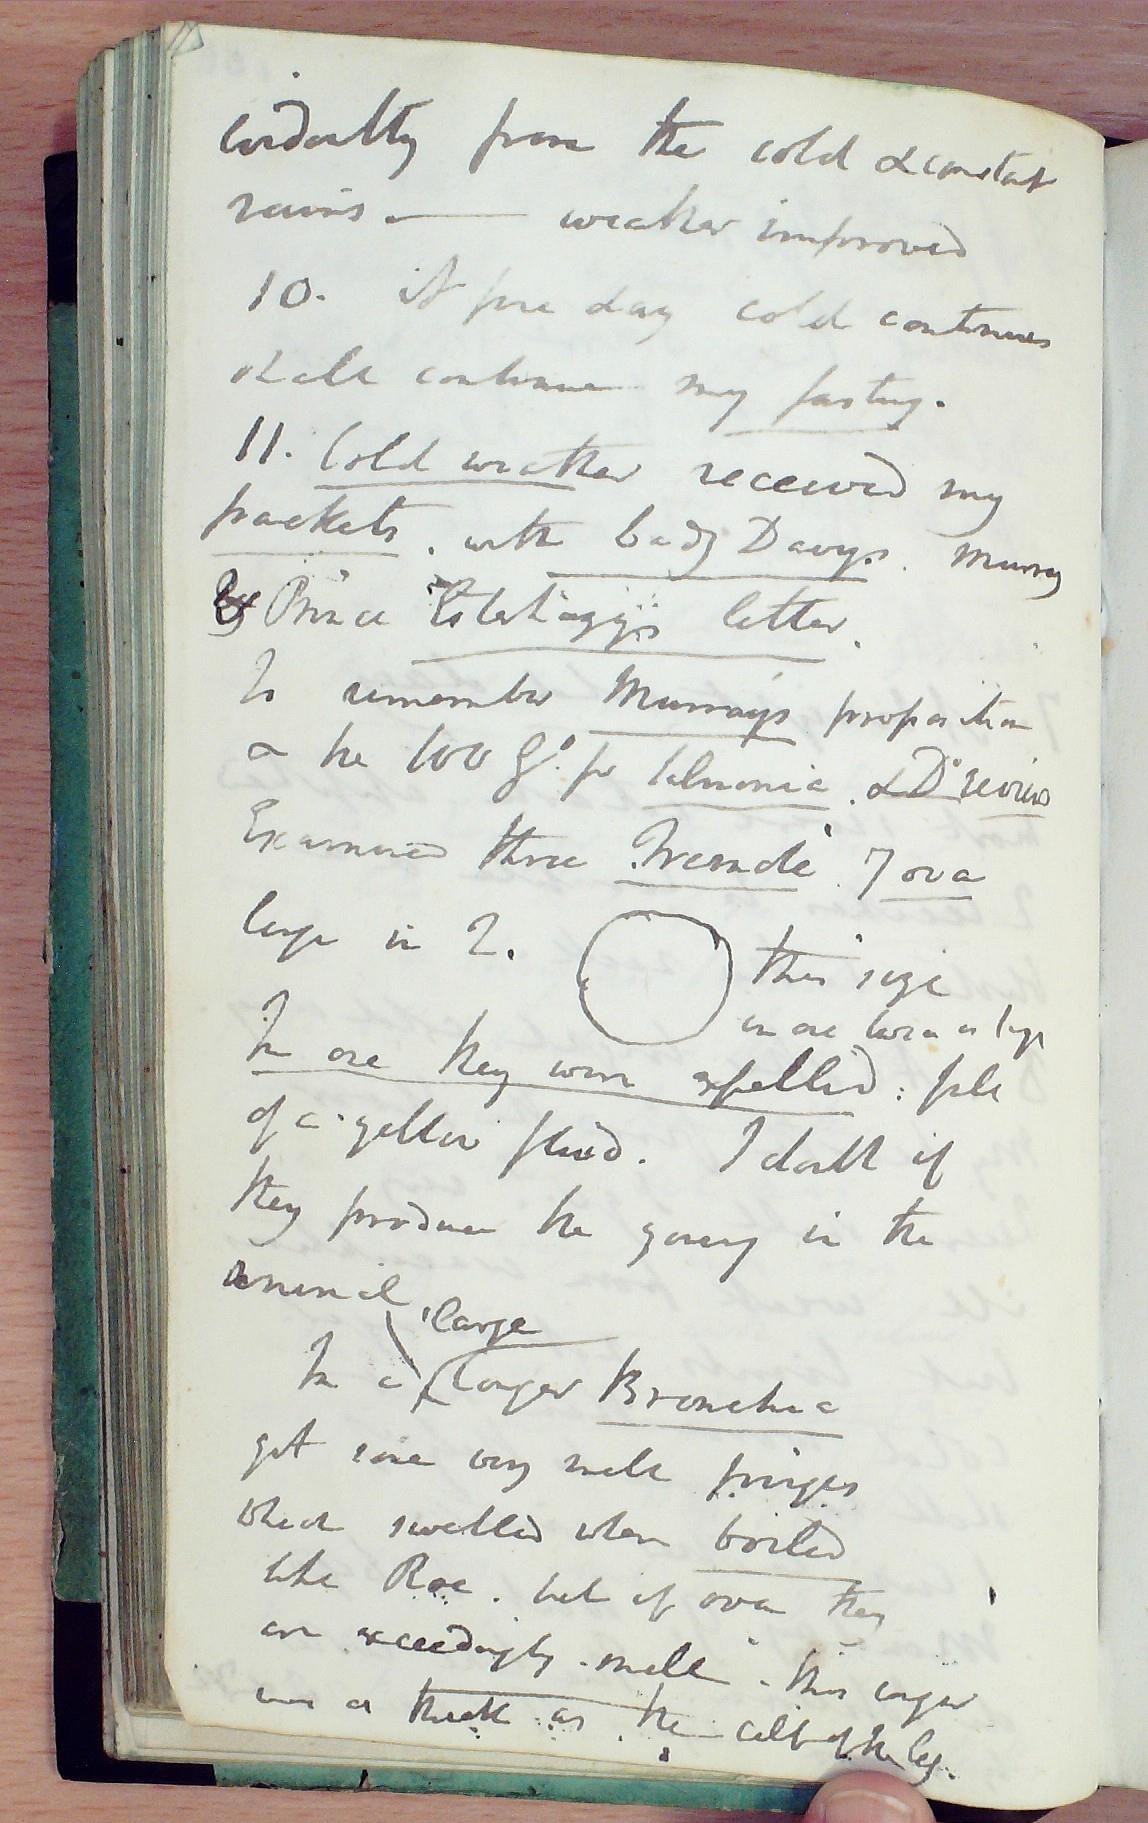 cordially from the cold & constant
rains. — weather improved
10. A fine day cold continues
shall continue my fasting.
11. Cold weather received my
packets. with Lady Davys. Murray
Prince Esterhazy's letter.
To remember Murrays proposition
the 100 for Salmonia. & D
Examined three 7 ova
large in 2. this size
in one as large
In one they were expelled: full
of a yellow fluid. I doubt if
they produce the young in the
animal
large
In a longer Bronchia
got some very small fringes
which swelled when boiled
like Roe. but if ova they
are exceedingly small. this
was as thick as the calf of the leg.